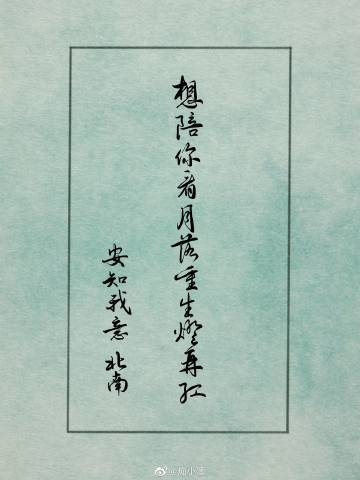 想陪你看月落重生灯再红
安知我意 北南